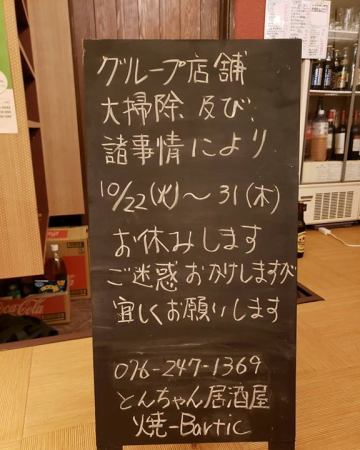 グループ店舗
大掃除及び、
諸事情により
10/22(火)～31(木)
お休みします
ご迷惑おかけしますが
宜しくお願いします
076-247-1369
とんちゃん居酒屋
焼-Bartic
Coca-Cola